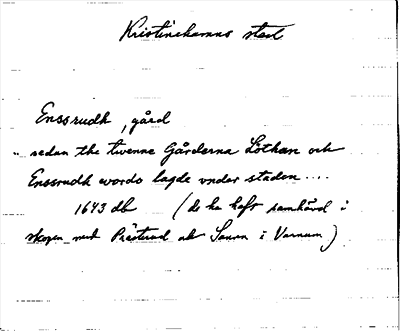 Kristinehamns stad
Enssrudh, gård
" sedan the twenne Gårderna Lötkan och
Enssrudh wordo lagde vnder staden ...
1643 db (de ha haft samhörd i
skogen med Prästerud ok i Varnum)